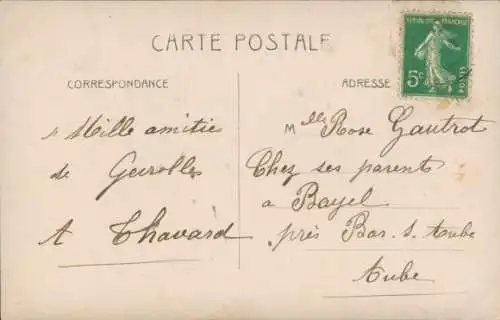 CARTE POSTALE
REPUBLIQUE FRANÇAISE
5c
POSTES
CORRESPONDANCE
ADRESSE
Mille amitiés
de
A Thavard
Mlle Rose Gautrot
Chez ses parents
a Bayel
près Bar. s. Aube
Aube